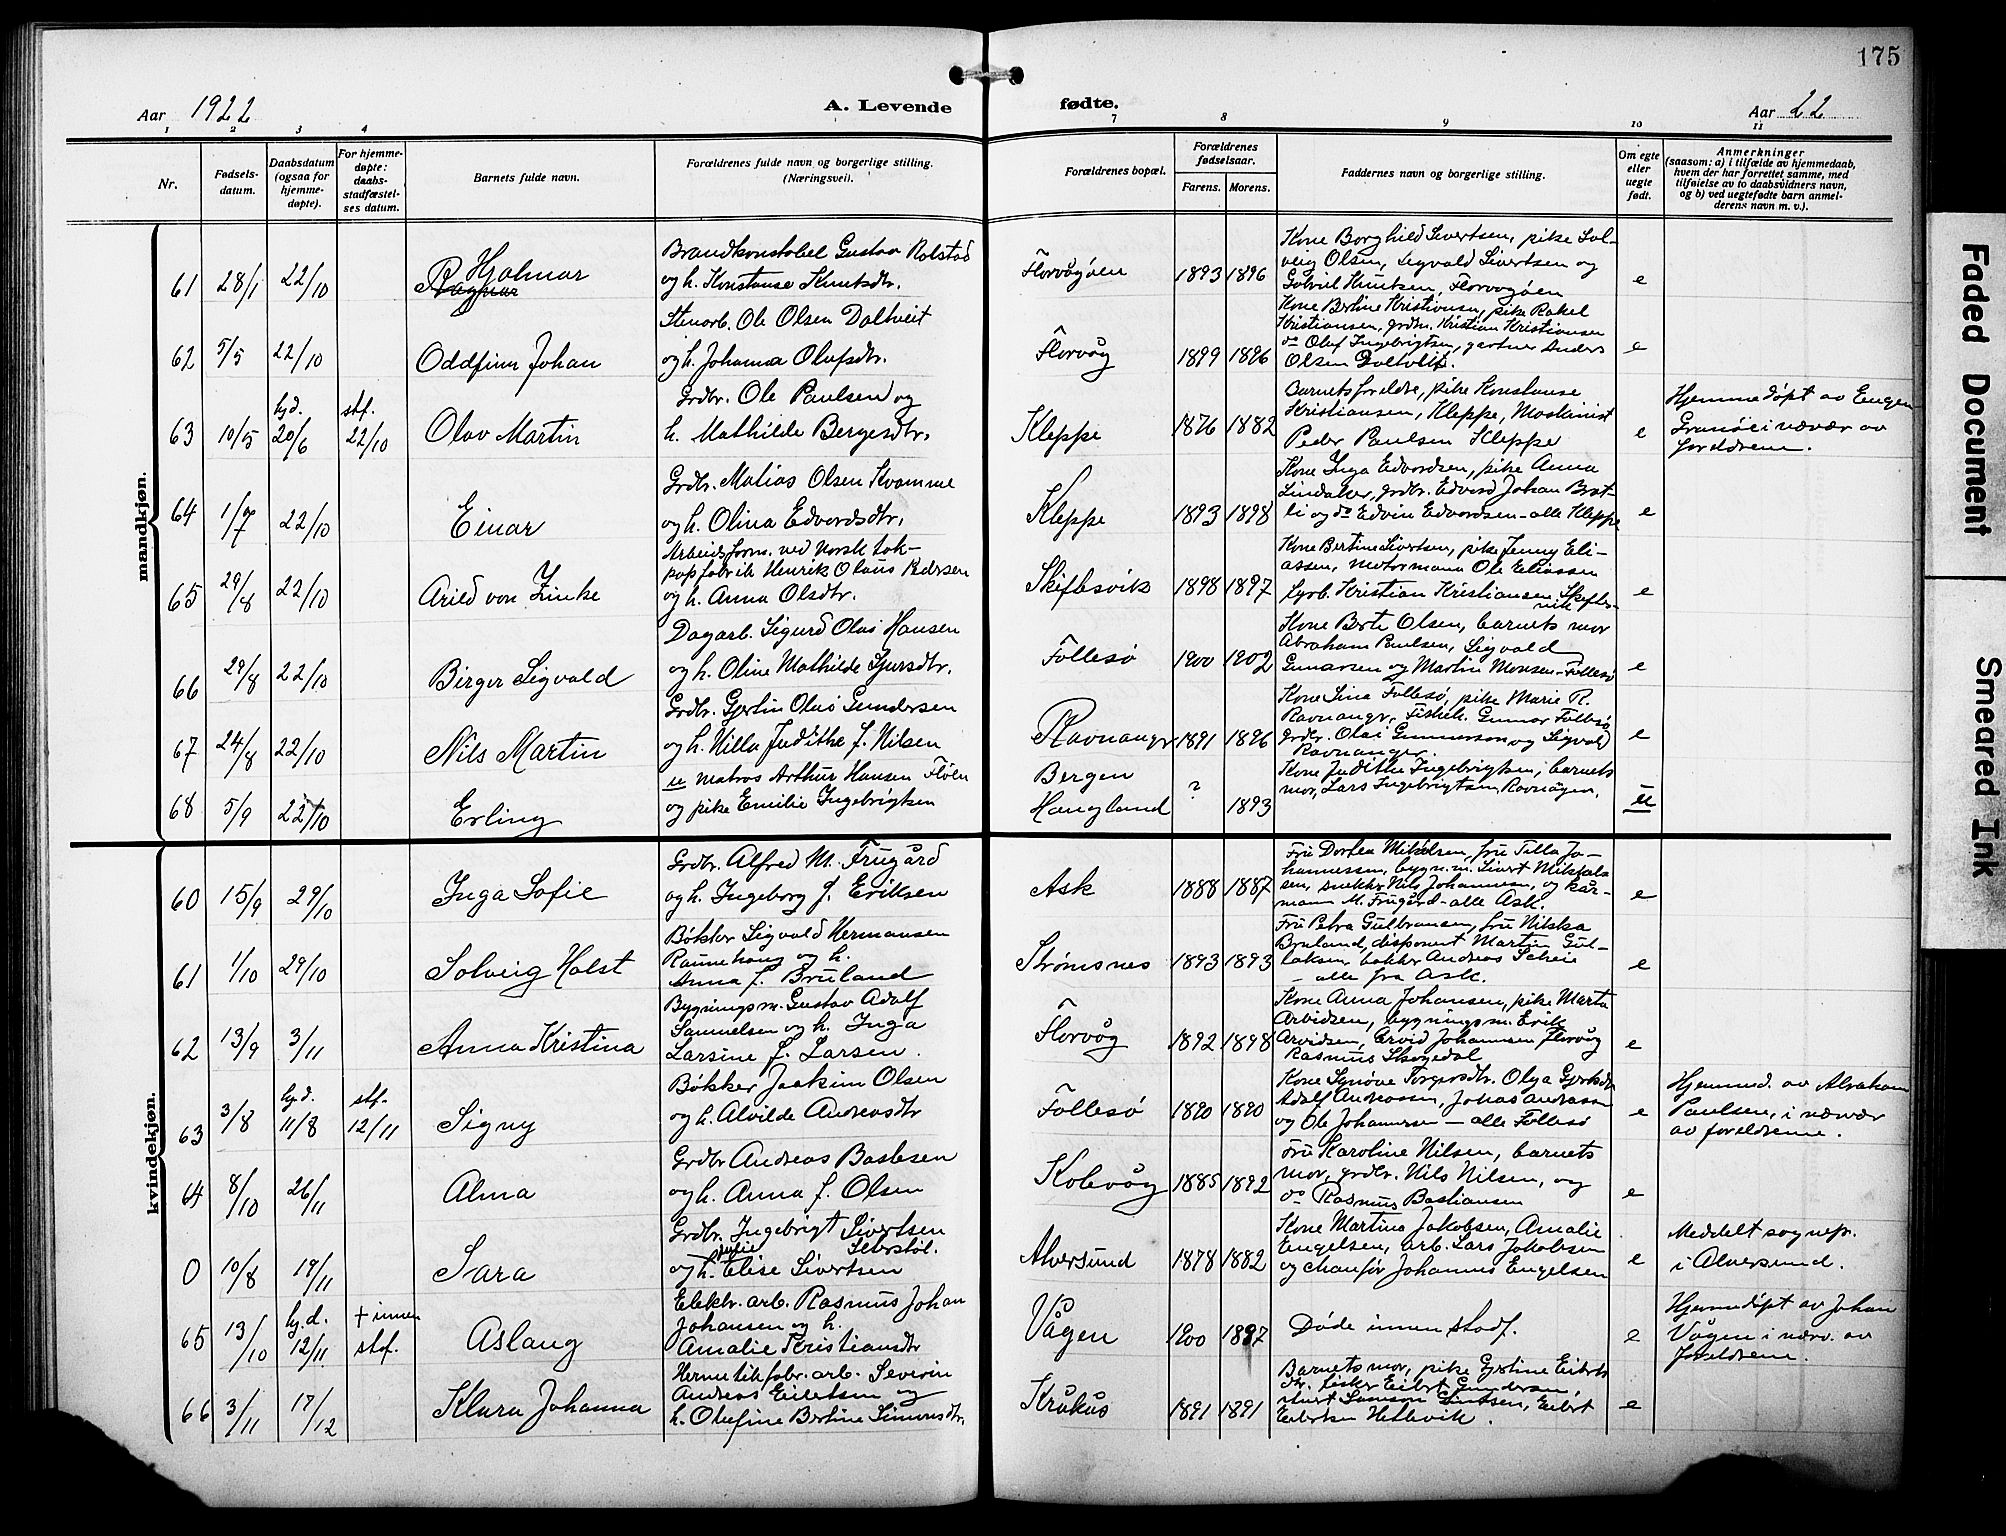 175
Aar 1922
A. Levende fødte.
Aar 22
1 2 3 4 7 8 9 10 11
Nr.
Fødsels-
datum.
Daabsdatum
(ogsaa for
hjemme-
døpte).
For hjemme-
døpte:
daabs-
stadfæstel-
ses datum.
Barnets fulde navn.
Forældrenes fulde navn og borgerlige stilling.
(Næringsvei).
Forældrenes bopæl.
Forældrenes
fødselsaar.
Farens. Morens.
Faddernes navn og borgerlige stilling.
Om egte
eller
uegte
født.
Anmerkninger
(saasom: a) i tilfælde av hjemmedaab,
hvem der har forrettet samme, med
tilføielse av to daabsvidners navn,
og b) ved uegtefødte barn anmel-
derens navn m. v.).
mandkjøn.
61 28/1 22/10 Hjalmar
Ragnar
Brandkonstabel Gustav Rolstad
og h. Konstanse Knutsdtr.
Florvågøen 1893 1896
Kone Borghild Sivertsen, pike Sol-
veig Olsen, Sigvald Sivertsen og
Gabriel Knutsen, Florvågøen
e
62 5/5 22/10 Oddfinn Johan
Stenarb. Ole Olsen Daltveit
og h. Johanna Olufsdtr.
Florvåg 1899 1896
Kone Bertine Kristiansen, pike Rakel
Kristiansen, grdbr. Kristian Kristiansen
do Oluf Ingebrigtsen, gartner Anders
Olsen Daltveit.
e
63 10/5 hjd. 20/6 stf. 22/10 Olav Martin
Grdbr. Ole Paulsen og
h. Mathilde Bergesdtr.
Kleppe 1876 1882
Barnets foreldre, pike Konstanse
Kristiansen, Kleppe, Maskinist
Peder Paulsen Kleppe
e
Hjemmedøpt av Eugen
i nævær av
foreldrene.
64 1/7 22/10 Einar
Grdbr. Matias Olsen Kvamme
og h. Olina Edvardsdtr.
Kleppe 1893 1898
Kone Inga Edvardsen, pike Anna
Lindaker, grdbr. Edvard Johan Brat-
li og do Edvin Edvardsen - alle Kleppe
e
65 29/8 22/10 Arild von Zinke
Arbeidsform. ved Norsk tak-
papfabrik Henrik Olaus Pedersen
og h. Anna Olsdtr.
Skiftesvik 1898 1897
Kone Bertine Sivertsen, pike Jenny Eli-
assen, motormann Ole Eliassen
fyrb. Kristian Kristiansen Skiftes-
vik
e
66 29/8 22/10 Birger Sigvald
Dagarb. Sigurd Olai Hansen
og h. Oline Mathilde Sjursdtr.
Follesø 1900 1902
Kone Berte Olsen, barnets mor
Abraham Paulsen, Sigvald
Gunarsen og Martin Monsen - Follesø
e
67 24/8 22/10 Nils Martin
Grdbr. Gjertin Olai Gundersen
og h. Nilla Judithe f. Nilsen
Ravnanger 1891 1896
Kone Sina Follesø, pike Marie R.
Ravnangr, Fiskeh. Gunnar Follesø
grdbr. Olai Gunnarson og Sigvald
Ravnanger.
e
68 5/9 22/10 Erling
u matros Arthur Hansen Fløen
og pike Emilie Ingebrigtsen
Bergen
Haugland ? 1893
Kone Judithe Ingebrigtsen, barnets
mor, Lars Ingebrigtsen Ravnågen.
u
kvindekjøn.
60 15/9 29/10 Inga Sofie
Grdbr. Alfred M. Frugård
og h. Ingeborg J. Eriksen
Ask 1888 1887
Fru Dortea Mikalsen, fru Tilla Jo-
hannessen, bygn.m. Sivert Mikkel-
sen, snekker Nils Johannesen, og kår-
mann M. Frugård - alle Ask.
e
61 1/10 29/10 Solveig Holst
Bøkker Sigvald Hermansen
Rauhaug og h.
Anna f. Bruland
Strømsnes 1893 1893
Fru Petra Gulbransen, fru Nikka
Bruland, disponent Martin Gul-
laksen, bakker Andreas Scheie
- alle fra Ask.
e
62 13/9 3/11 Anna Kristina
Bygningsm. Gustav Adolf
Samuelsen og h. Inga
Larsine f. Larsen.
Florvåg 1892 1898
Kone Anna Johansen, pike Marta
Arvidsen, bygningsm. Erik
Arvidsen, Arvid Johannsen Florvåg
Rasmus Skogedal
e
63 3/8 hjd. 11/8 stf. 12/11 Signy
Bøkker Joakim Olsen
og h. Alvilde Andreasdtr
Follesø 1890 1890
Kone Synøve Torgersdtr. Olga Gjertsdtr
Adolf Andreassen, Johas Andrassen
og Ole Johannesen - alle Follesø
e
Hjemmed. av Abraham
Paulsen, i nævær
av foreldrene.
64 8/10 26/11 Alma
Grdbr Andreas Bastesen
og h. Anna f. Olsen
Kolevåg 1885 1892
Fru Karoline Nilsen, barnets
mor, grdbr. Nils Nilsen, og
do Rasmus Bastiansen
e
0 10/8 19/11 Sara
Grdbr. Ingebrigt Sivertsen
Seterstøl.
og h. Sofie Elise Sivertsen
Alversund 1878 1882
Kone Martina Jakobsen, Amalie
Engelsen, arb. Lars Jakobsen
og chauffør Johannes Engelsen
e
Meddelt sognepr.
i Alversund.
65 13/10 hj.d. 12/11 + innen stf. Aslaug
Elektr. arb. Rasmus Johan
Johansen og h.
Amalie Kristiansdtr
Vågen 1900 1897
Døde innen stadf.
e
Hjemmedøpt av Johan
Vågen i nærv. av
foreldrene.
66 3/11 17/12 Klara Johanna
Hermetikfabr. arb. Severin
Andreas Eilertsen og
h. Olufine Bertine Simonsdtr.
Kråkås 1891 1891
Barnets mor, pike Gjertine Eilerts
dtr. fisker Eilert Gundersen,
Simon Simonsen, Eilert
Eilertsen Hetlevik.
e
Faded Document
Smeared Ink